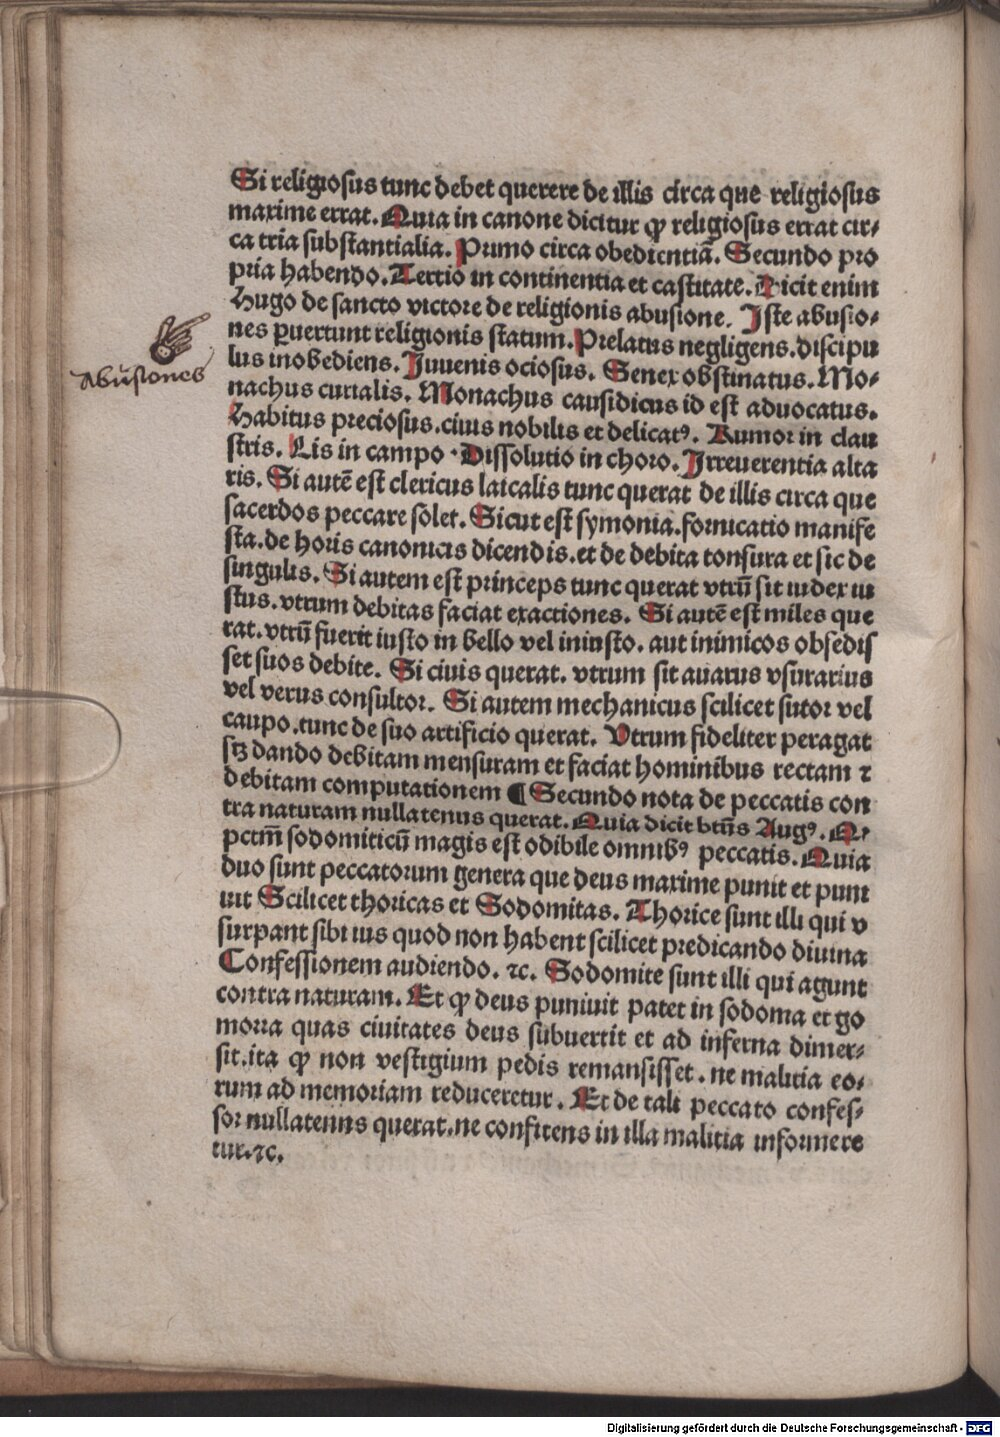 Si religiosus tunc debet querere de illis circa que religiosus
maxime errat. Quia in canone dicitur ꝙ religiosus errat cir⸗
ca tria substantialia. Primo circa obedientiā. Secundo pro
pria habendo. Tertio in continentia et castitate. Dicit enim
Hugo de sancto victore de religionis abusione. Iste abusio⸗
nes ꝑuertunt religionis statum. Prelatus negligens. discipu
lus inobediens. Iuuenis ociosus. Senex obstinatus. Mo⸗
nachus curialis. Monachus causidicus id est aduocatus.
Habitus preciosus. cius nobilis et delicatꝰ. Rumor in clau
stris. Lis in campo. Dissolutio in choro. Irreuerentia alta
ris. Si autē est clericus laicalis tunc querat de illis circa que
sacerdos peccare solet. Sicut est symonia. fornicatio manife
sta. de horis canonicis dicendis. et de debita tonsura et sic de
singulis. Si autem est princeps tunc querat vtrū sit iudex iu
stus. vtrum debitas faciat exactiones. Si autē est miles que
rat. vtrū fuerit iusto in bello vel iniusto. aut inimicos obsedis
set suos debite. Si ciuis querat. vtrum sit auarus vsurarius
vel verus consultor. Si autem mechanicus scilicet sutor vel
caupo. tunc de suo artificio querat. Vtrum fideliter peragat
sꝫ dando debitam mensuram et faciat hominibus rectam ⁊
debitam computationem ¶ Secundo nota de peccatis con
tra naturam nullatenus querat. Quia dicit btūs Augꝰ. Q⸗
pctm̄ sodomiticū magis est odibile omnibꝰ peccatis. Quia
duo sunt peccatorum genera que deus maxime punit et puni
uit Scilicet thoricas et Sodomitas. Thorice sunt illi qui v
surpant sibi ius quod non habent scilicet predicando diuina
Confessionem audiendo. ⁊c. Sodomite sunt illi qui agunt
contra naturam. Et ꝙ deus puniuit patet in sodoma et go
morra quas ciuitates deus subuertit et ad inferna dimer⸗
sit. ita ꝙ non vestigium pedis remansisset. ne malitia eo⸗
rum ad memoriam reduceretur. Et de tali peccato confes⸗
sor nullatenus querat. ne confitens in illa malitia informere
tur. ⁊c.
abusiones
Digitalisierung gefördert durch die Deutsche Forschungsgemeinschaft - DFG